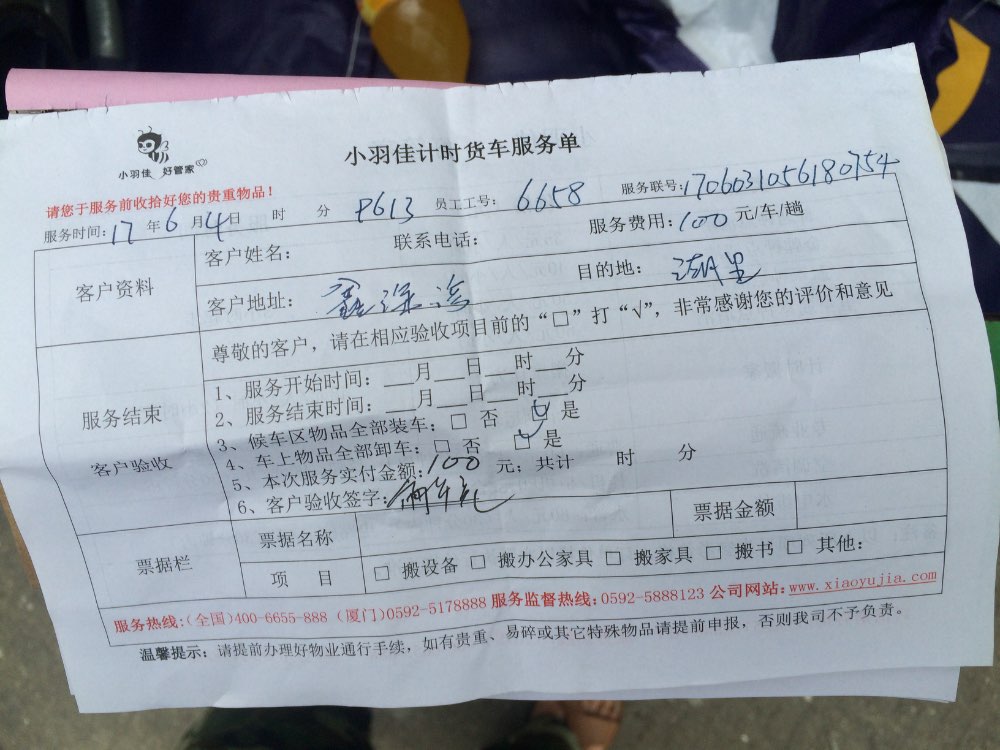 小羽佳 好管家
小羽佳计时货车服务单
请您于服务前收拾好您的贵重物品！
服务时间: 17 年 6 月 4 日 时 分 P613 员工工号: 6658 服务联号: 1706031056180754
客户资料
客户姓名: 联系电话: 服务费用: 100 元/车/趟
客户地址: 鑫 目的地: 湖里
服务结束
客户验收
尊敬的客户，请在相应验收项目前的“□”打“√”，非常感谢您的评价和意见
1、服务开始时间: ___月___日___时___分
2、服务结束时间: ___月___日___时___分
3、候车区物品全部装车: □ 否 ☑ 是
4、车上物品全部卸车: □ 否 ☑ 是
5、本次服务实付金额: 100 元; 共计 时 分
6、客户验收签字:
票据栏
票据名称 票据金额
项 目 □ 搬设备 □ 搬办公家具 □ 搬家具 □ 搬书 □ 其他:
服务热线:(全国)400-6655-888 (厦门)0592-5178888 服务监督热线:0592-5888123 公司网站:www.xiaoyujia.com
温馨提示: 请提前办理好物业通行手续，如有贵重、易碎或其它特殊物品请提前申报，否则我司不予负责。